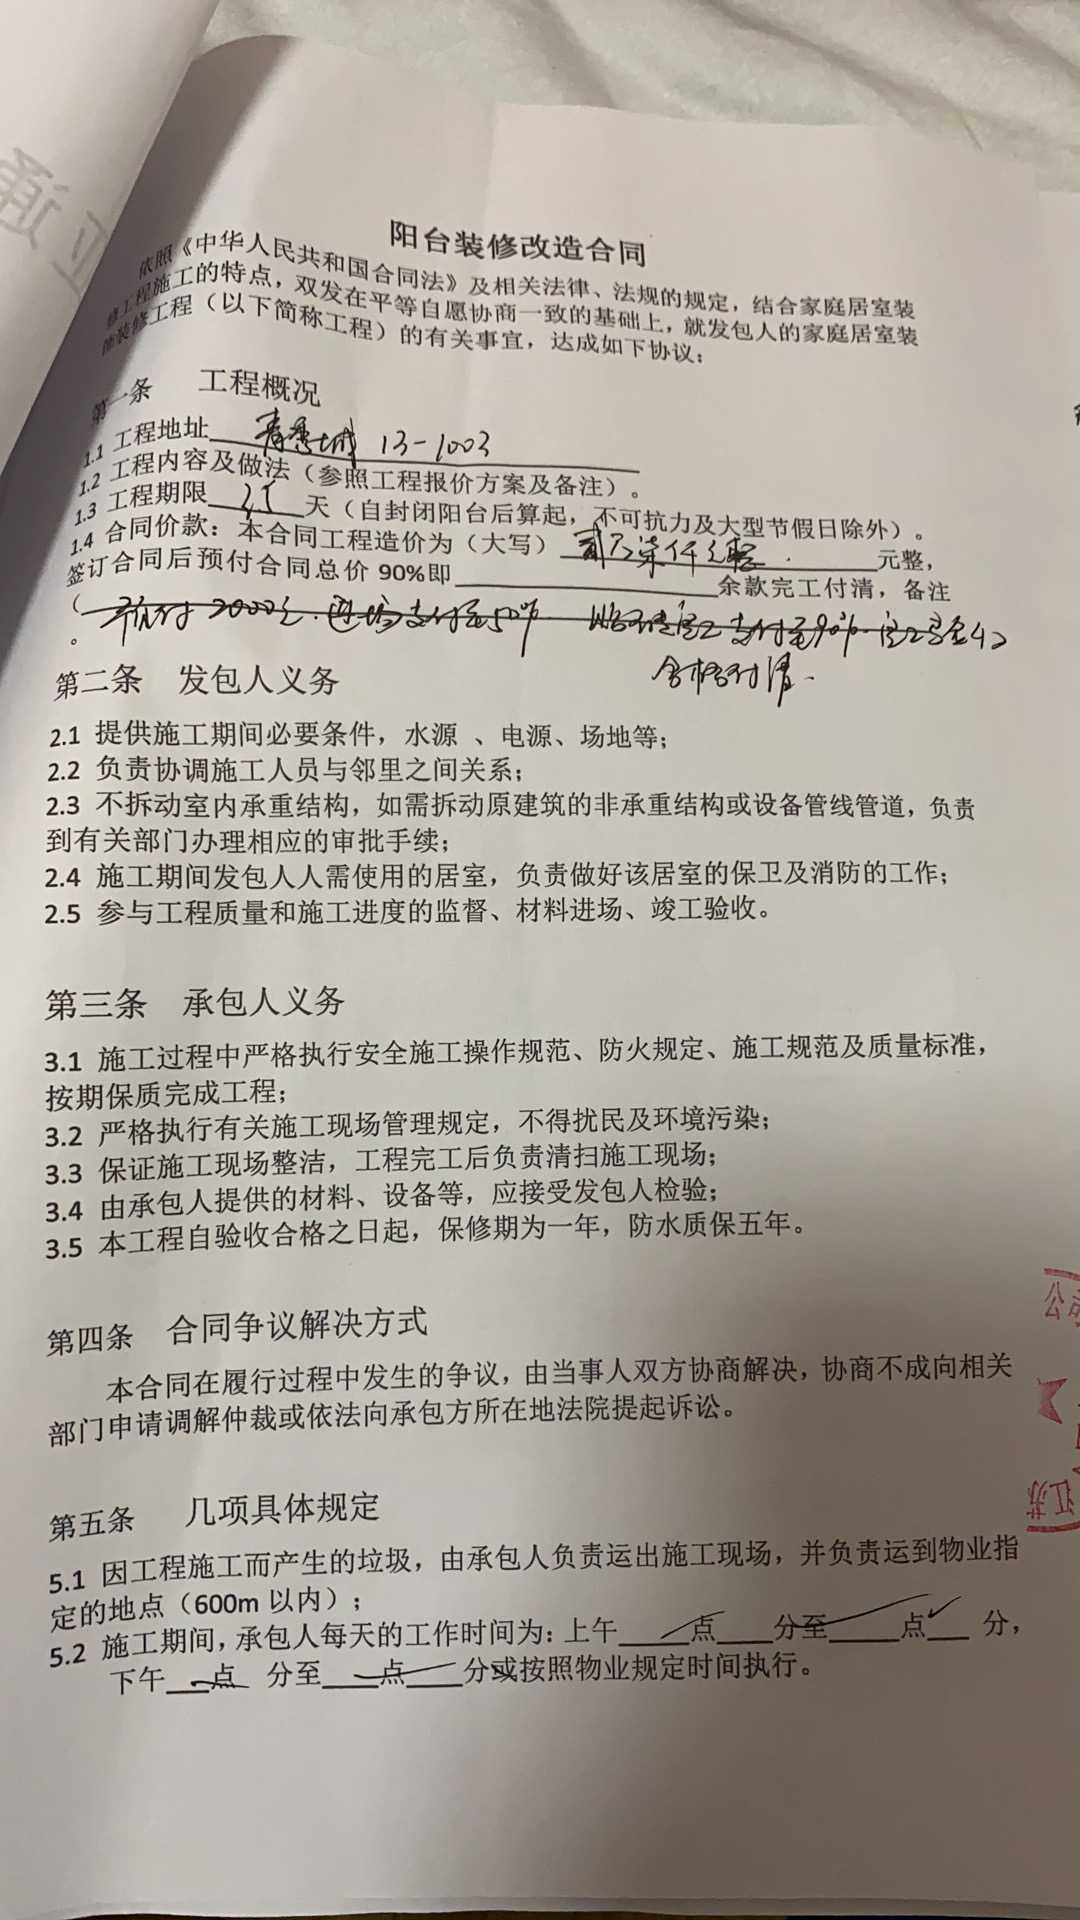 阳台装修改造合同
依照《中华人民共和国合同法》及相关法律、法规的规定，结合家庭居室装
修工程施工的特点，双发在平等自愿协商一致的基础上，就发包人的家庭居室装
饰装修工程（以下简称工程）的有关事宜，达成如下协议；
第一条 工程概况
1.1 工程地址 青秀城 13-1003
1.2 工程内容及做法（参照工程报价方案及备注）。
1.3 工程期限 天（自封闭阳台后算起，不可抗力及大型节假日除外）。
1.4 合同价款：本合同工程造价为（大写） 贰万柒仟元整. 元整，
签订合同后预付合同总价 90%即 余款完工付清，备注
（ 预付 2000元. 进场支付至50% 支付至90% 完工验收
合格付清.
。
第二条 发包人义务
2.1 提供施工期间必要条件，水源 、电源、场地等；
2.2 负责协调施工人员与邻里之间关系；
2.3 不拆动室内承重结构，如需拆动原建筑的非承重结构或设备管线管道，负责
到有关部门办理相应的审批手续；
2.4 施工期间发包人人需使用的居室，负责做好该居室的保卫及消防的工作；
2.5 参与工程质量和施工进度的监督、材料进场、竣工验收。
第三条 承包人义务
3.1 施工过程中严格执行安全施工操作规范、防火规定、施工规范及质量标准，
按期保质完成工程；
3.2 严格执行有关施工现场管理规定，不得扰民及环境污染；
3.3 保证施工现场整洁，工程完工后负责清扫施工现场；
3.4 由承包人提供的材料、设备等，应接受发包人检验；
3.5 本工程自验收合格之日起，保修期为一年，防水质保五年。
第四条 合同争议解决方式
本合同在履行过程中发生的争议，由当事人双方协商解决，协商不成向相关
部门申请调解仲裁或依法向承包方所在地法院提起诉讼。
第五条 几项具体规定
5.1 因工程施工而产生的垃圾，由承包人负责运出施工现场，并负责运到物业指
定的地点（600m 以内）；
5.2 施工期间，承包人每天的工作时间为：上午 点 分至 点 分，
下午 点 分至 点 分或按照物业规定时间执行。
江苏
公